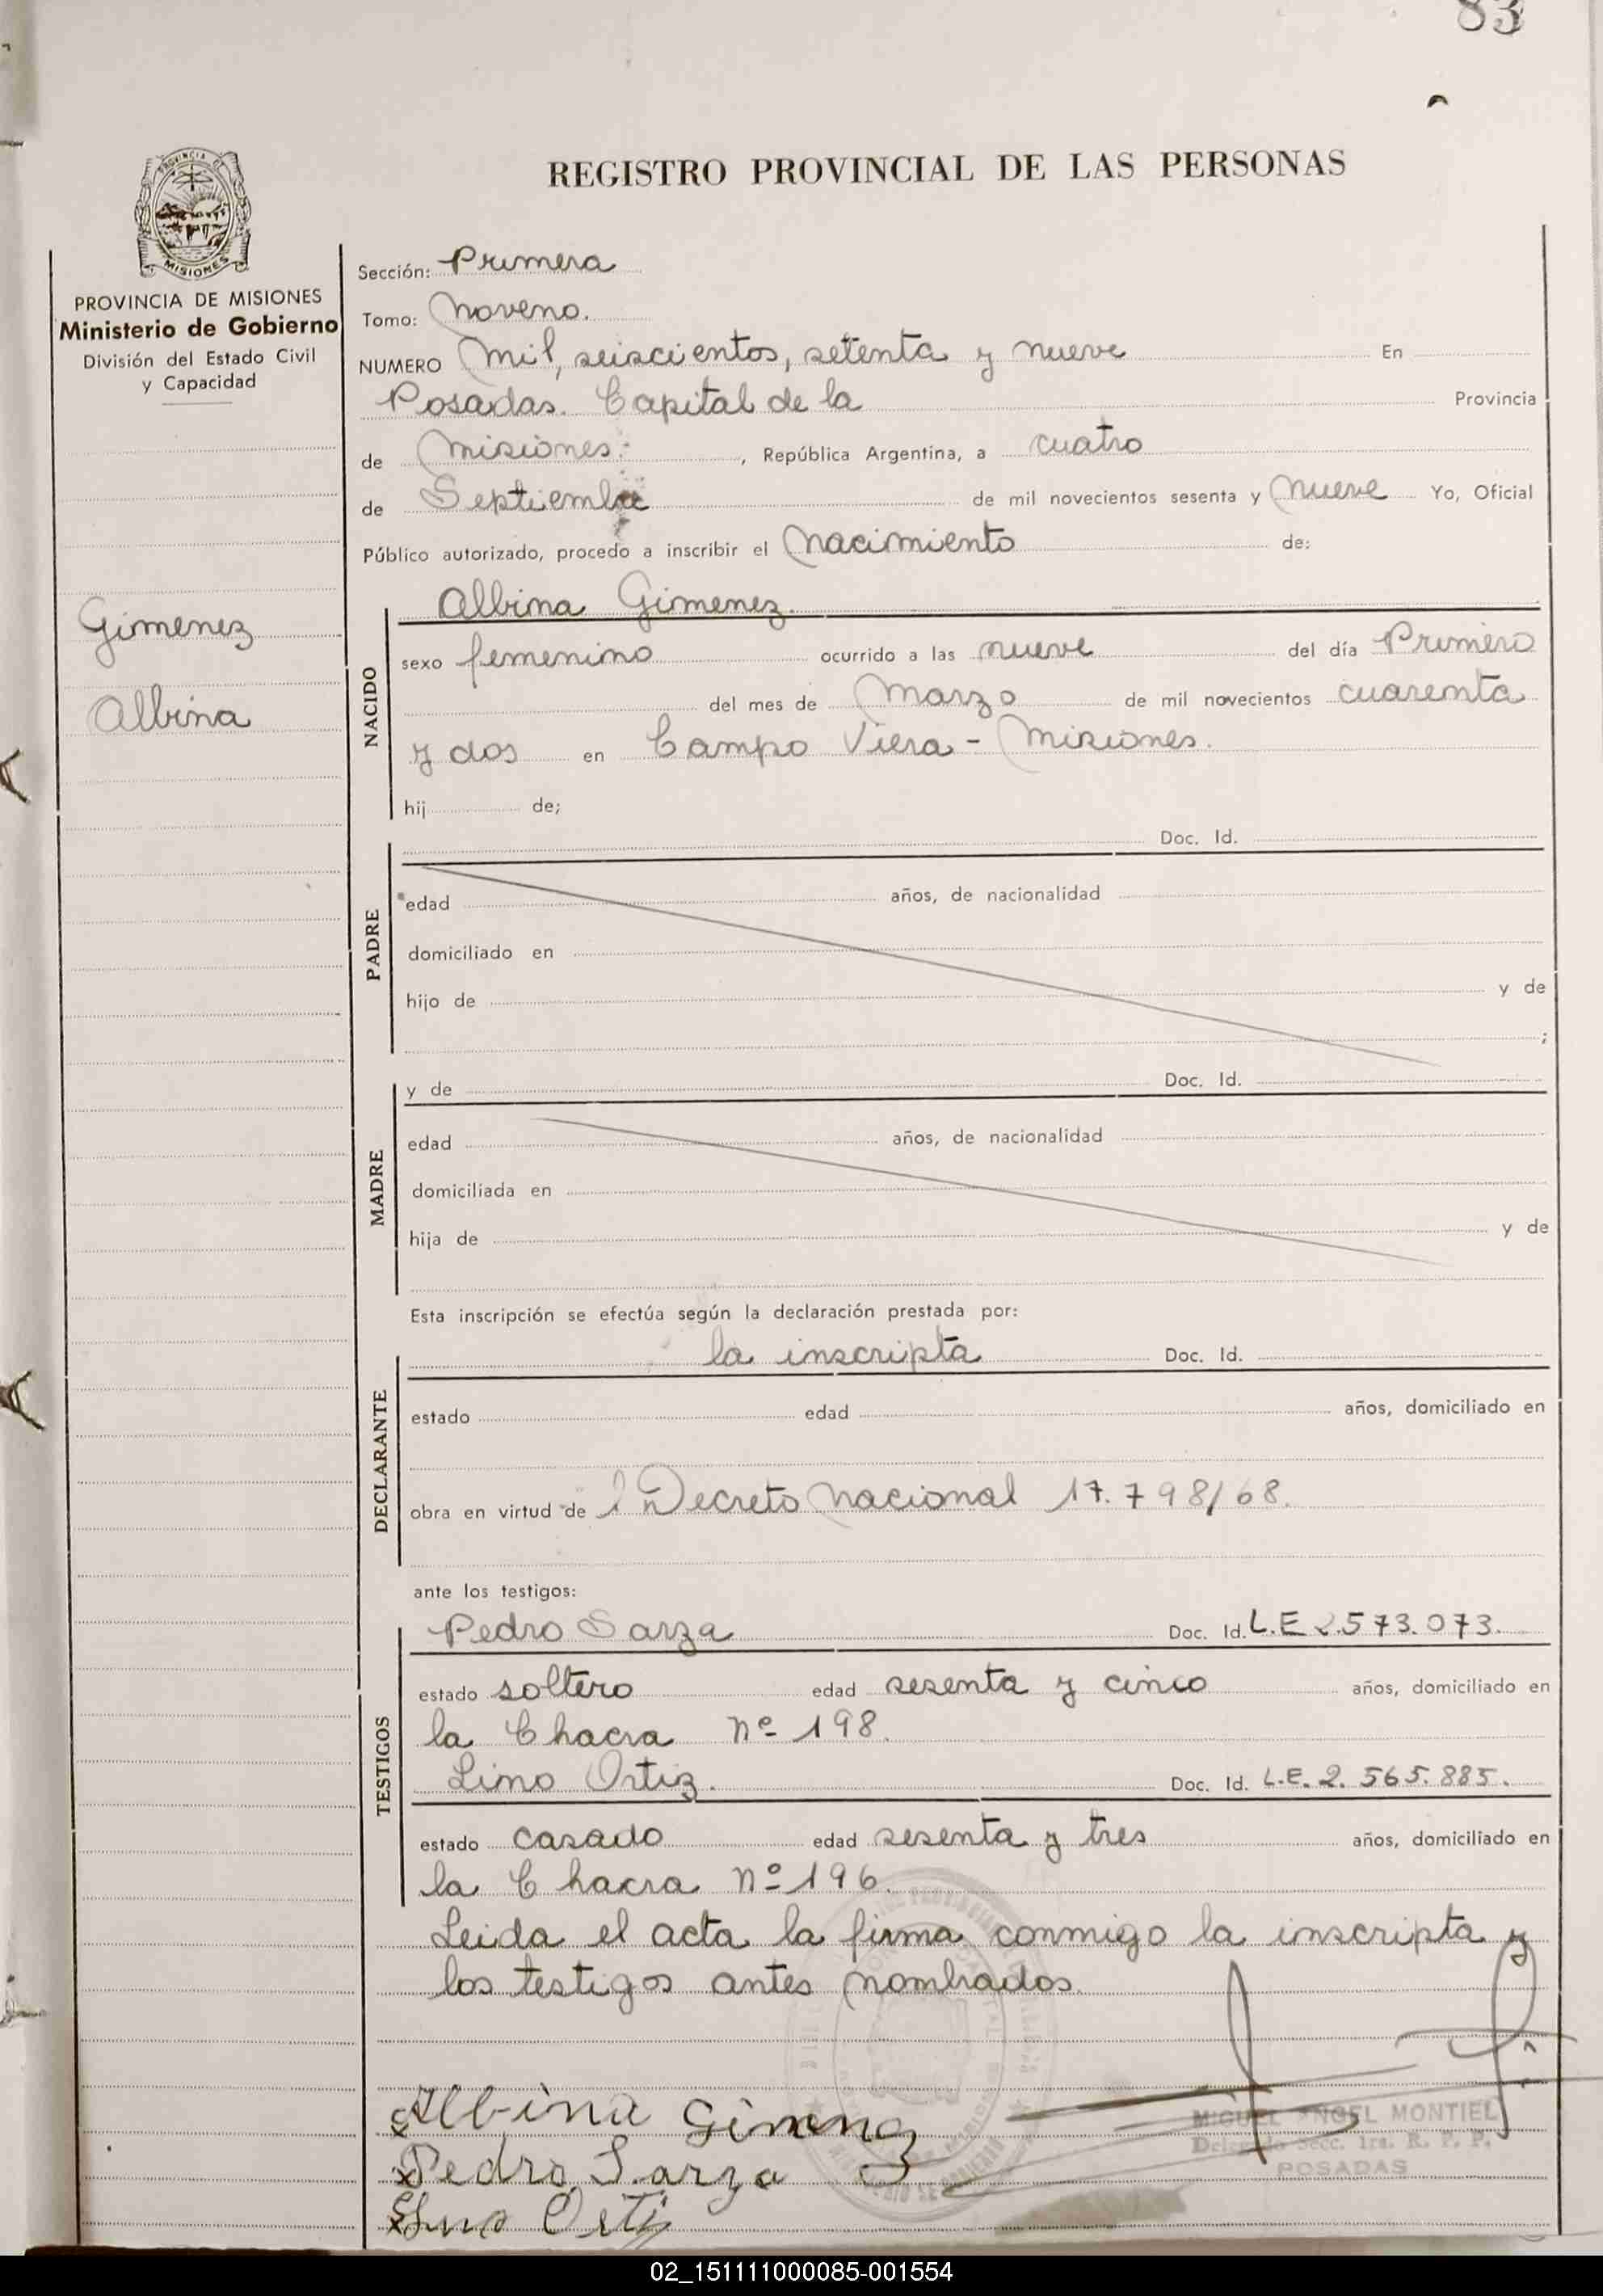 83
REGISTRO PROVINCIAL DE LAS PERSONAS
PROVINCIA DE MISIONES
Ministerio de Gobierno
División del Estado Civil
y Capacidad
Gimenez
Albina
Sección: Primera
Tomo: Noveno.
NUMERO Mil, seiscientos, setenta y nueve En
Posadas. Capital de la Provincia
de Misiones. , República Argentina, a cuatro
de Septiembre de mil novecientos sesenta y nueve Yo, Oficial
Público autorizado, procedo a inscribir el Nacimiento de:
Albina Gimenez.
NACIDO
sexo femenino ocurrido a las nueve del día Primero
del mes de Marzo de mil novecientos cuarenta
y dos en Campo Viera - Misiones.
hij de;
PADRE
Doc. Id.
edad años, de nacionalidad
domiciliado en
hijo de y de
;
MADRE
y de Doc. Id.
edad años, de nacionalidad
domiciliada en
hija de y de
Esta inscripción se efectúa según la declaración prestada por:
DECLARANTE
la inscripta Doc. Id.
estado edad años, domiciliado en
obra en virtud de l Decreto Nacional 17.798/68.
ante los testigos:
TESTIGOS
Pedro Sarza Doc. Id. L.E 2.573.073.
estado soltero edad sesenta y cinco años, domiciliado en
la Chacra Nº 198.
Lino Ortiz. Doc. Id. L.E. 2.565.885.
estado casado edad sesenta y tres años, domiciliado en
la Chacra Nº 196.
Leida el acta la firma conmigo la inscripta y
los testigos antes nombrados.
Albina Gimenez
Pedro Sarza
Lino Ortiz
MIGUEL ANGEL MONTIEL
Delegado Secc. 1ra. R. P. P.
POSADAS
02_151111000085-001554